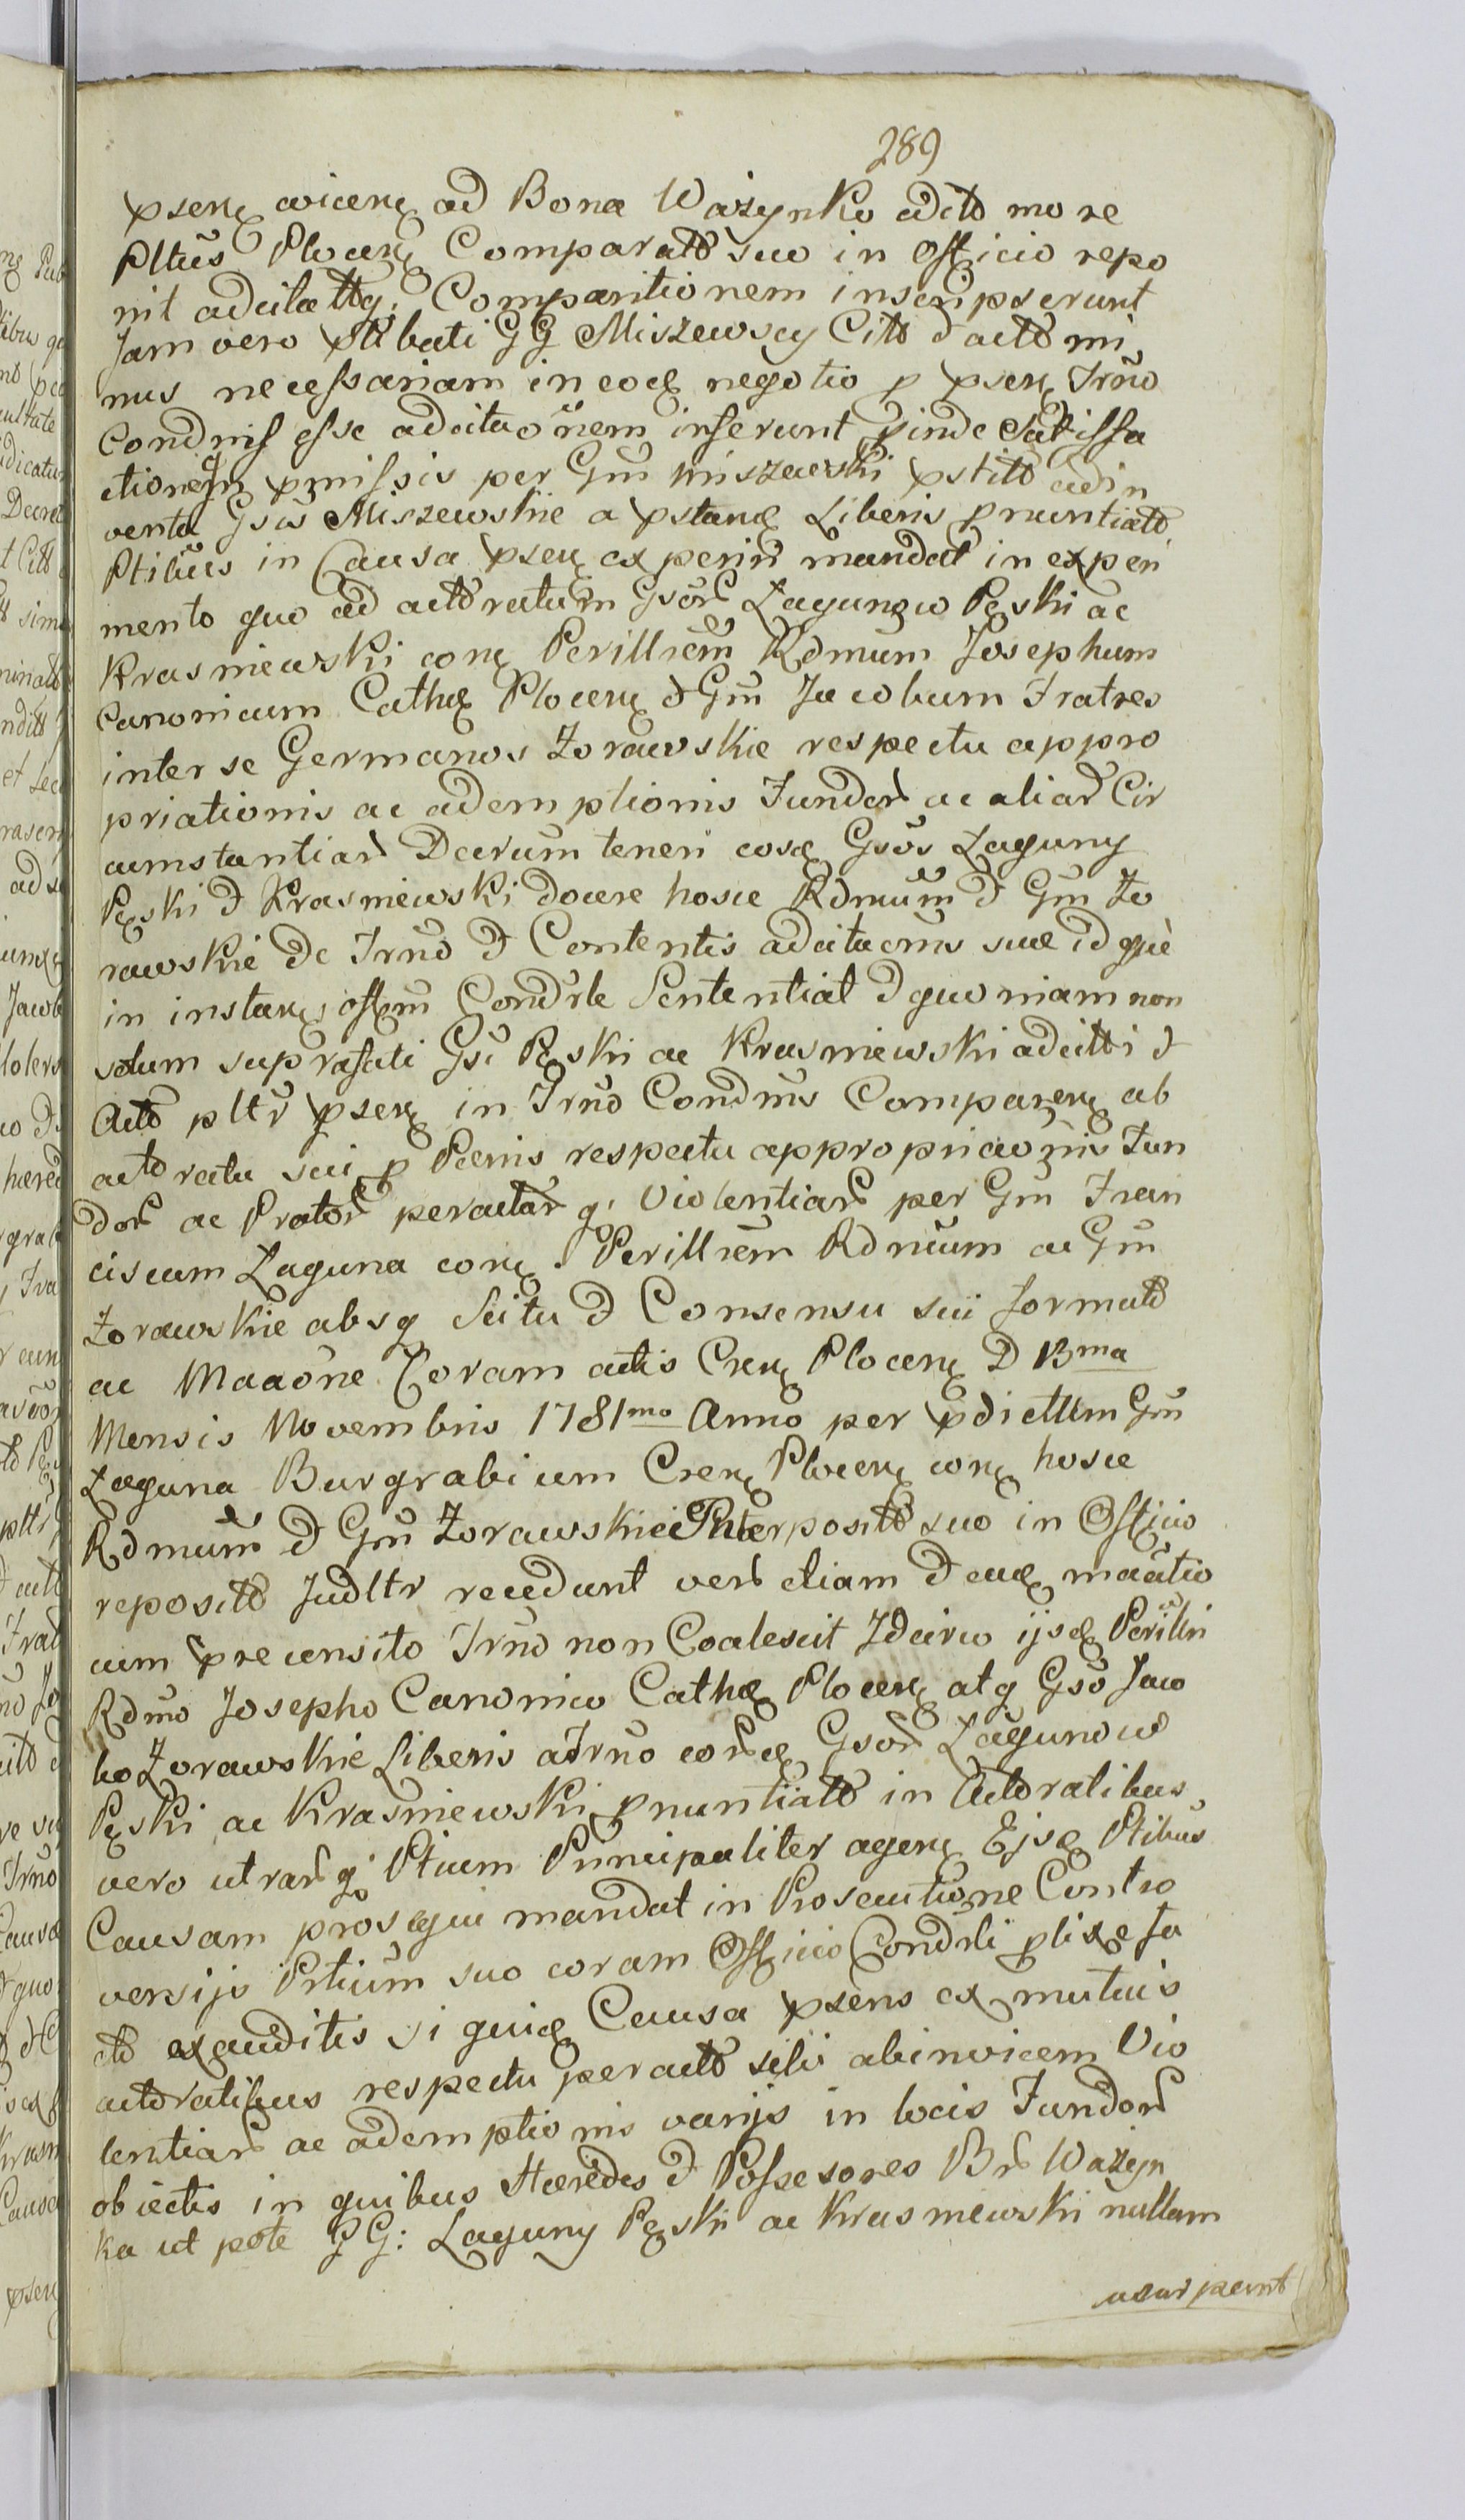 289
psen vicen ad Bona Ważynko adctd more
Pltūs Plocen Comparatd suo in Officio repo
nit adcitattq; Comparitionem inscripserunt
Jam vero ptlbati GG Miszewscy Citt & actd mi
nus necessariam in eoq negotio p psen Trnō
Condnis esse adcitaōnem inferunt pinde Satisfa
ctionem pmissis per Gm Miszewski pstitd adin
venta Gsōs Miszewskie a pstanq Liberis pnuntiatd
Ptibus in Causa psen experiri mandat in experi
mento quo ad actdratum Gsōr Lagunow Pęski ac
Krasniewski con Perillrem Rdmum Josephum
Canonicum Cathq Plocen & Gm Jacobum Fratres
inter se Germanos Żorawskie respectu appro
priationis ac ademptionis Fundor ac aliar Cir
cumstantiar Decrum teneri eosq Gsōs Laguny
Pęski & Krasniewski docere hosce Rdmum & Gm Żo
rawskie de Trnō & Contentis adcitaonis suae idquè
in instan offm Condrle Sententiat & quoniam non
solum suprafati Gsi Pęski ac Krasniewski adcitti &
Actd pltr psen in Trnō Condnis Comparen ab
actdratu sui p Poenis respectu appropriaōnis Fun
dor ac Prator peractar q; Violentiar per Gm Fran
ciscum Laguna con. Perillrem Rdmum ac Gm
Żorawskie absq Scitu & Consensu sui formatd
ac Maaōne Coram actis Cren Plocen D 13ma
Mensis Novembris 1781mo Anno per pdicttm Gm
Laguna Burgrabium Cren Plocen con hosce
Rdmum & Gm Żorawskie Interpositd suo in Officio
repositd Judltr recedunt ver etiam & eaq maātio
cum precensito Trnō non Coalescit Idcirco ijsq Perillri
Rdmo Josepho Canonico Cathq Plocen atq Gsō Jaco
bo Żorawskie Liberis a Trnō eorq Gsōr Lagunow
Pęski ac Krasniewski pnuntiatd in Actdratibus
vero utrarq; Ptium Principaliter agen Ejsq Ptibus
Causam prosequi mandat in Prosecutione Contro
versijs Prtium suo coram Officio Condrli plixe fa
ctd exauditis siquiq Causa psens ex mutuis
actdratibus respectu peractd sibi abinvicem Vio
lentiar ac ademptionis varijs in locis Fundor
objectis in quibus Haeredes & Possesores Br Ważyn
ka ut pote GG: Laguny Pęski ac Krasniewski nullam
usurpant